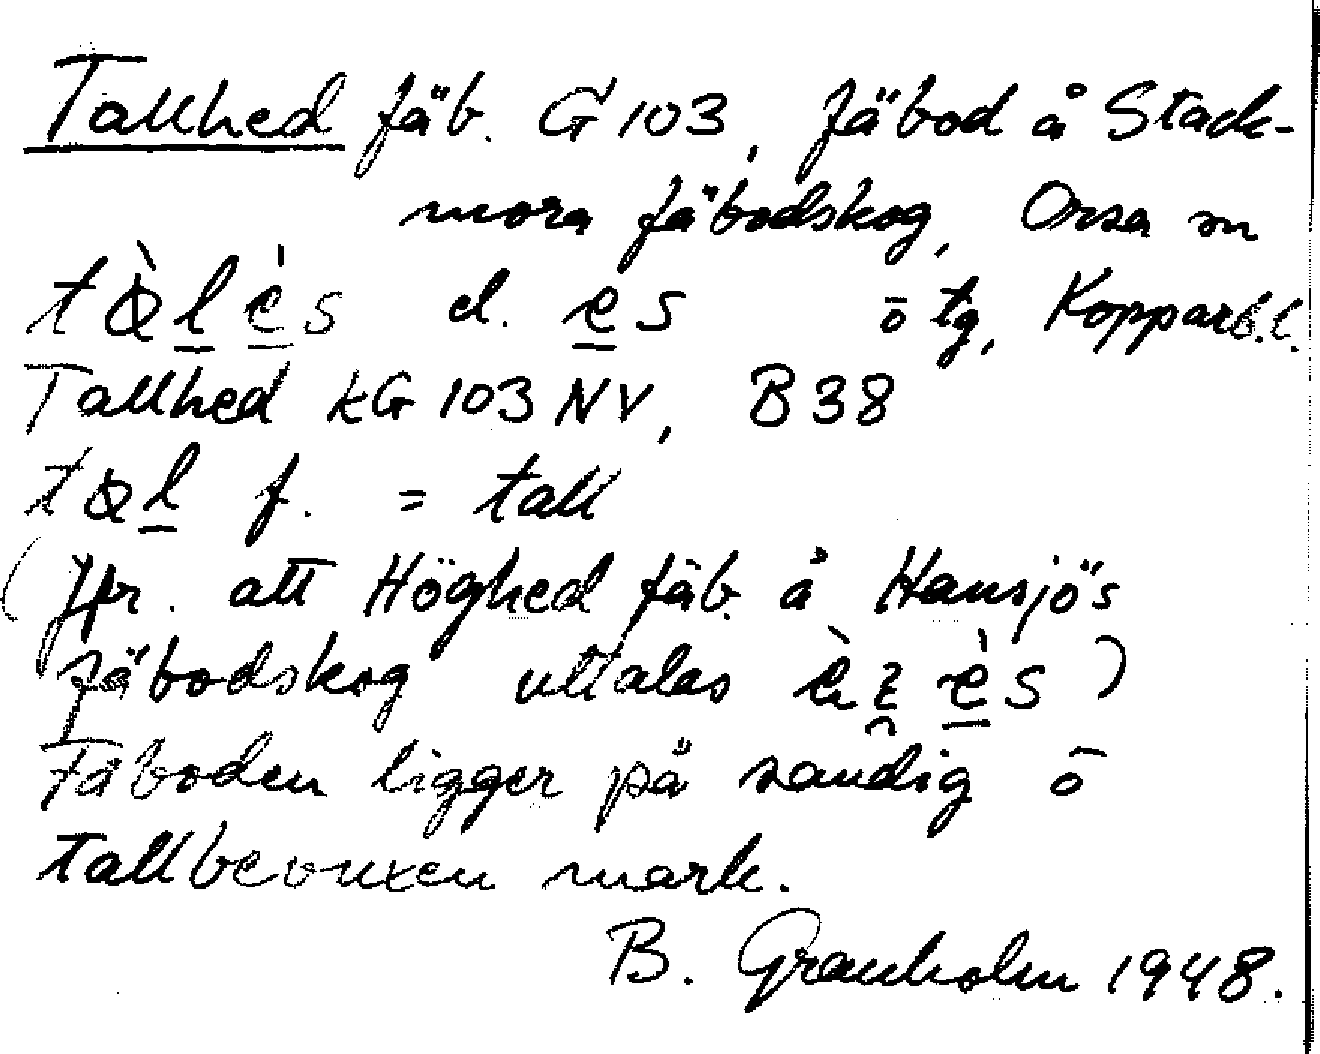 Tallhed fäb. G 103, fäbod å Stack-
mora fäbodskog, Orsa sn
o tg, Kopparb.l.
Tallhed kG 103 NV, B 38
f. = tall
(Jfr. att Höghed fäb. å Hansjö's
fäbodskog uttalas
Fäboden ligger på sandig o
tallbevuxen mark.
B. Granholm 1948.